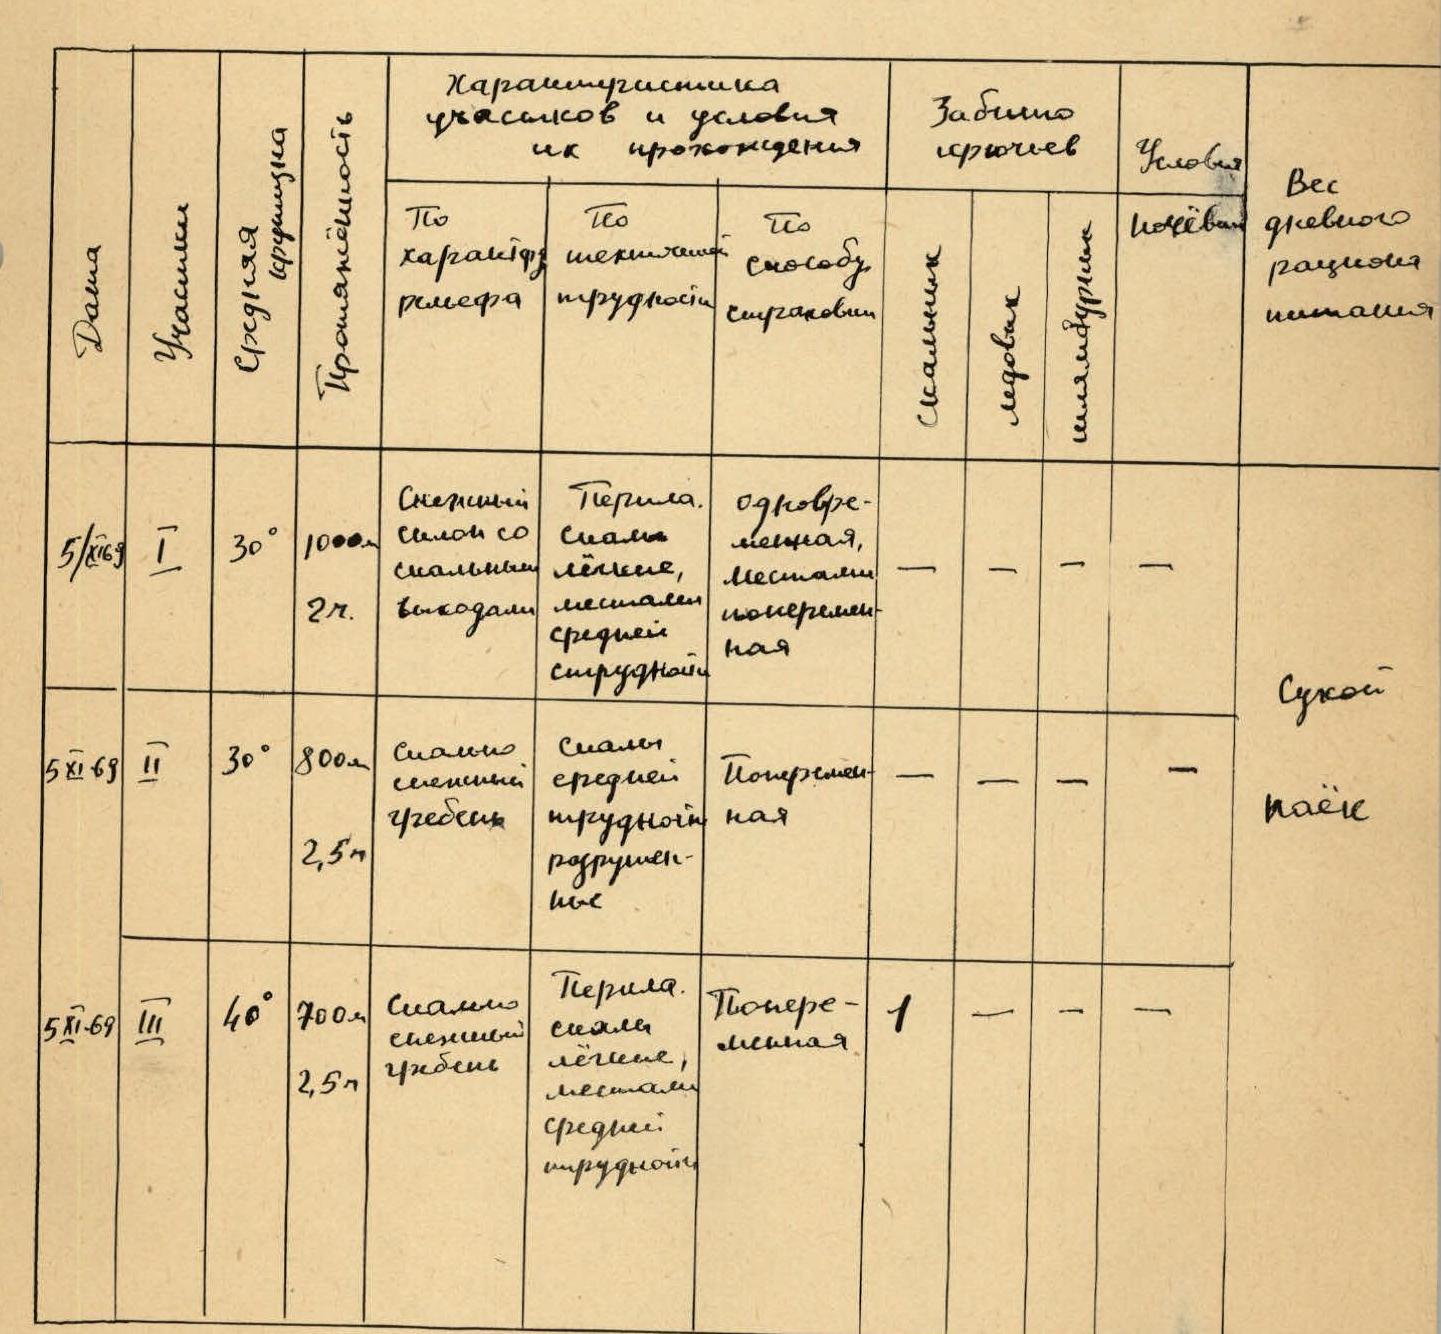 Дата
Участки
Средняя
крутизна
Протяжённость
Характеристика
участков и условия
их прохождения
По
характеру
рельефа
По
технической
трудности
По
способу
страховки
Забито
крючьев
скальных
ледовых
шлямбурных
Условия
ночёвки
Вес
дневного
рациона
питания
5/XI69
I
30°
1000м
2ч.
Снежный
склон со
скальными
выходами
Перила.
скалы
лёгкие,
местами
средней
струдности
одновре-
менная,
местами
поперемен-
ная
—
—
—
—
5 XI-69
II
30°
800м
2,5ч
Скально
снежный
гребень
Скалы
средней
трудности
разрушен-
ные
Поперемен-
ная
—
—
—
—
Сухой
паёк
5 XI-69
III
40°
700м
2,5ч
Скально
снежный
гребень
Перила.
скалы
лёгкие,
местами
средней
трудности
Попере-
менная
1
—
—
—